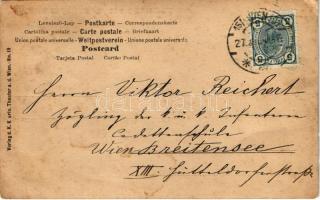 Levelező-Lap — Postkarte — Correspondenzkarte
Cartolina postale — Carte postale — Briefkaart
Union postale universelle — Weltpostverein — Unione postale universale
Postcard
Tarjeta Postal Cartão Postal
Herrn Viktor Reichert
Zögling der k. u. k. Infanterie
Cadettenschule
Wien Breitensee
XIII. Hütteldorferstraße